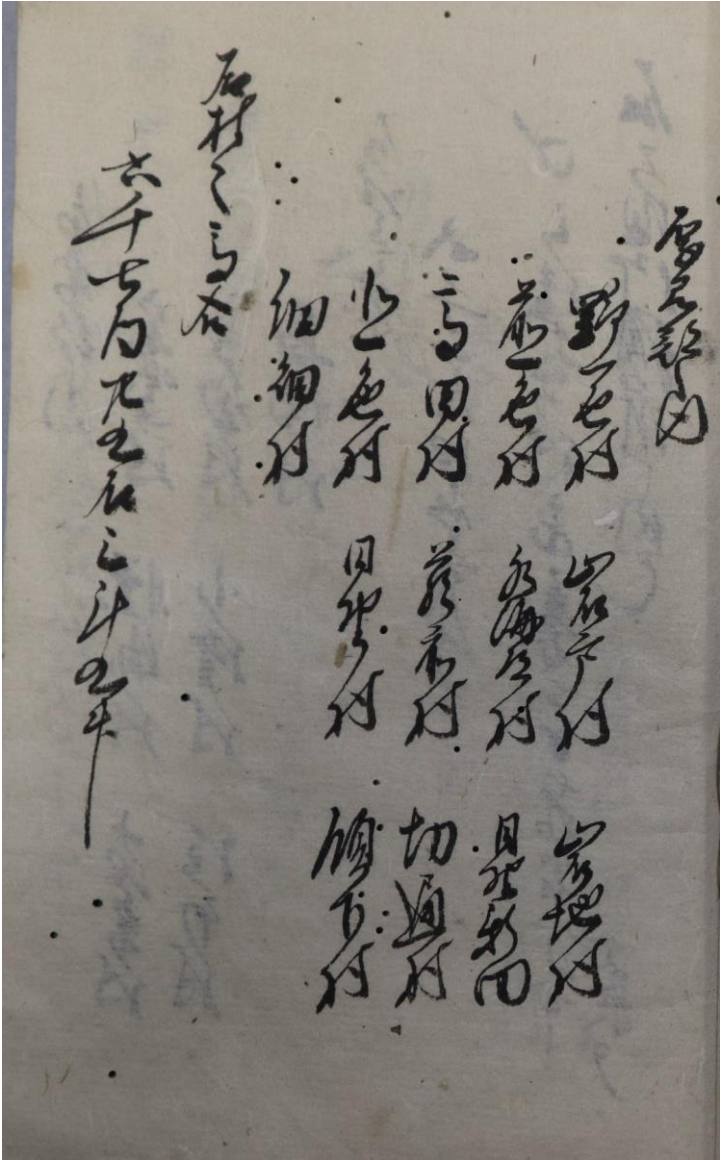 厚見郡之内
野一色村 岩戸村 岩地村
前一色村 水海道村 日野新田
高田村 蔵前村 切通村
北一色村 日野村 領下村
細畑村
右村々高合
六千七百 五石三斗五升